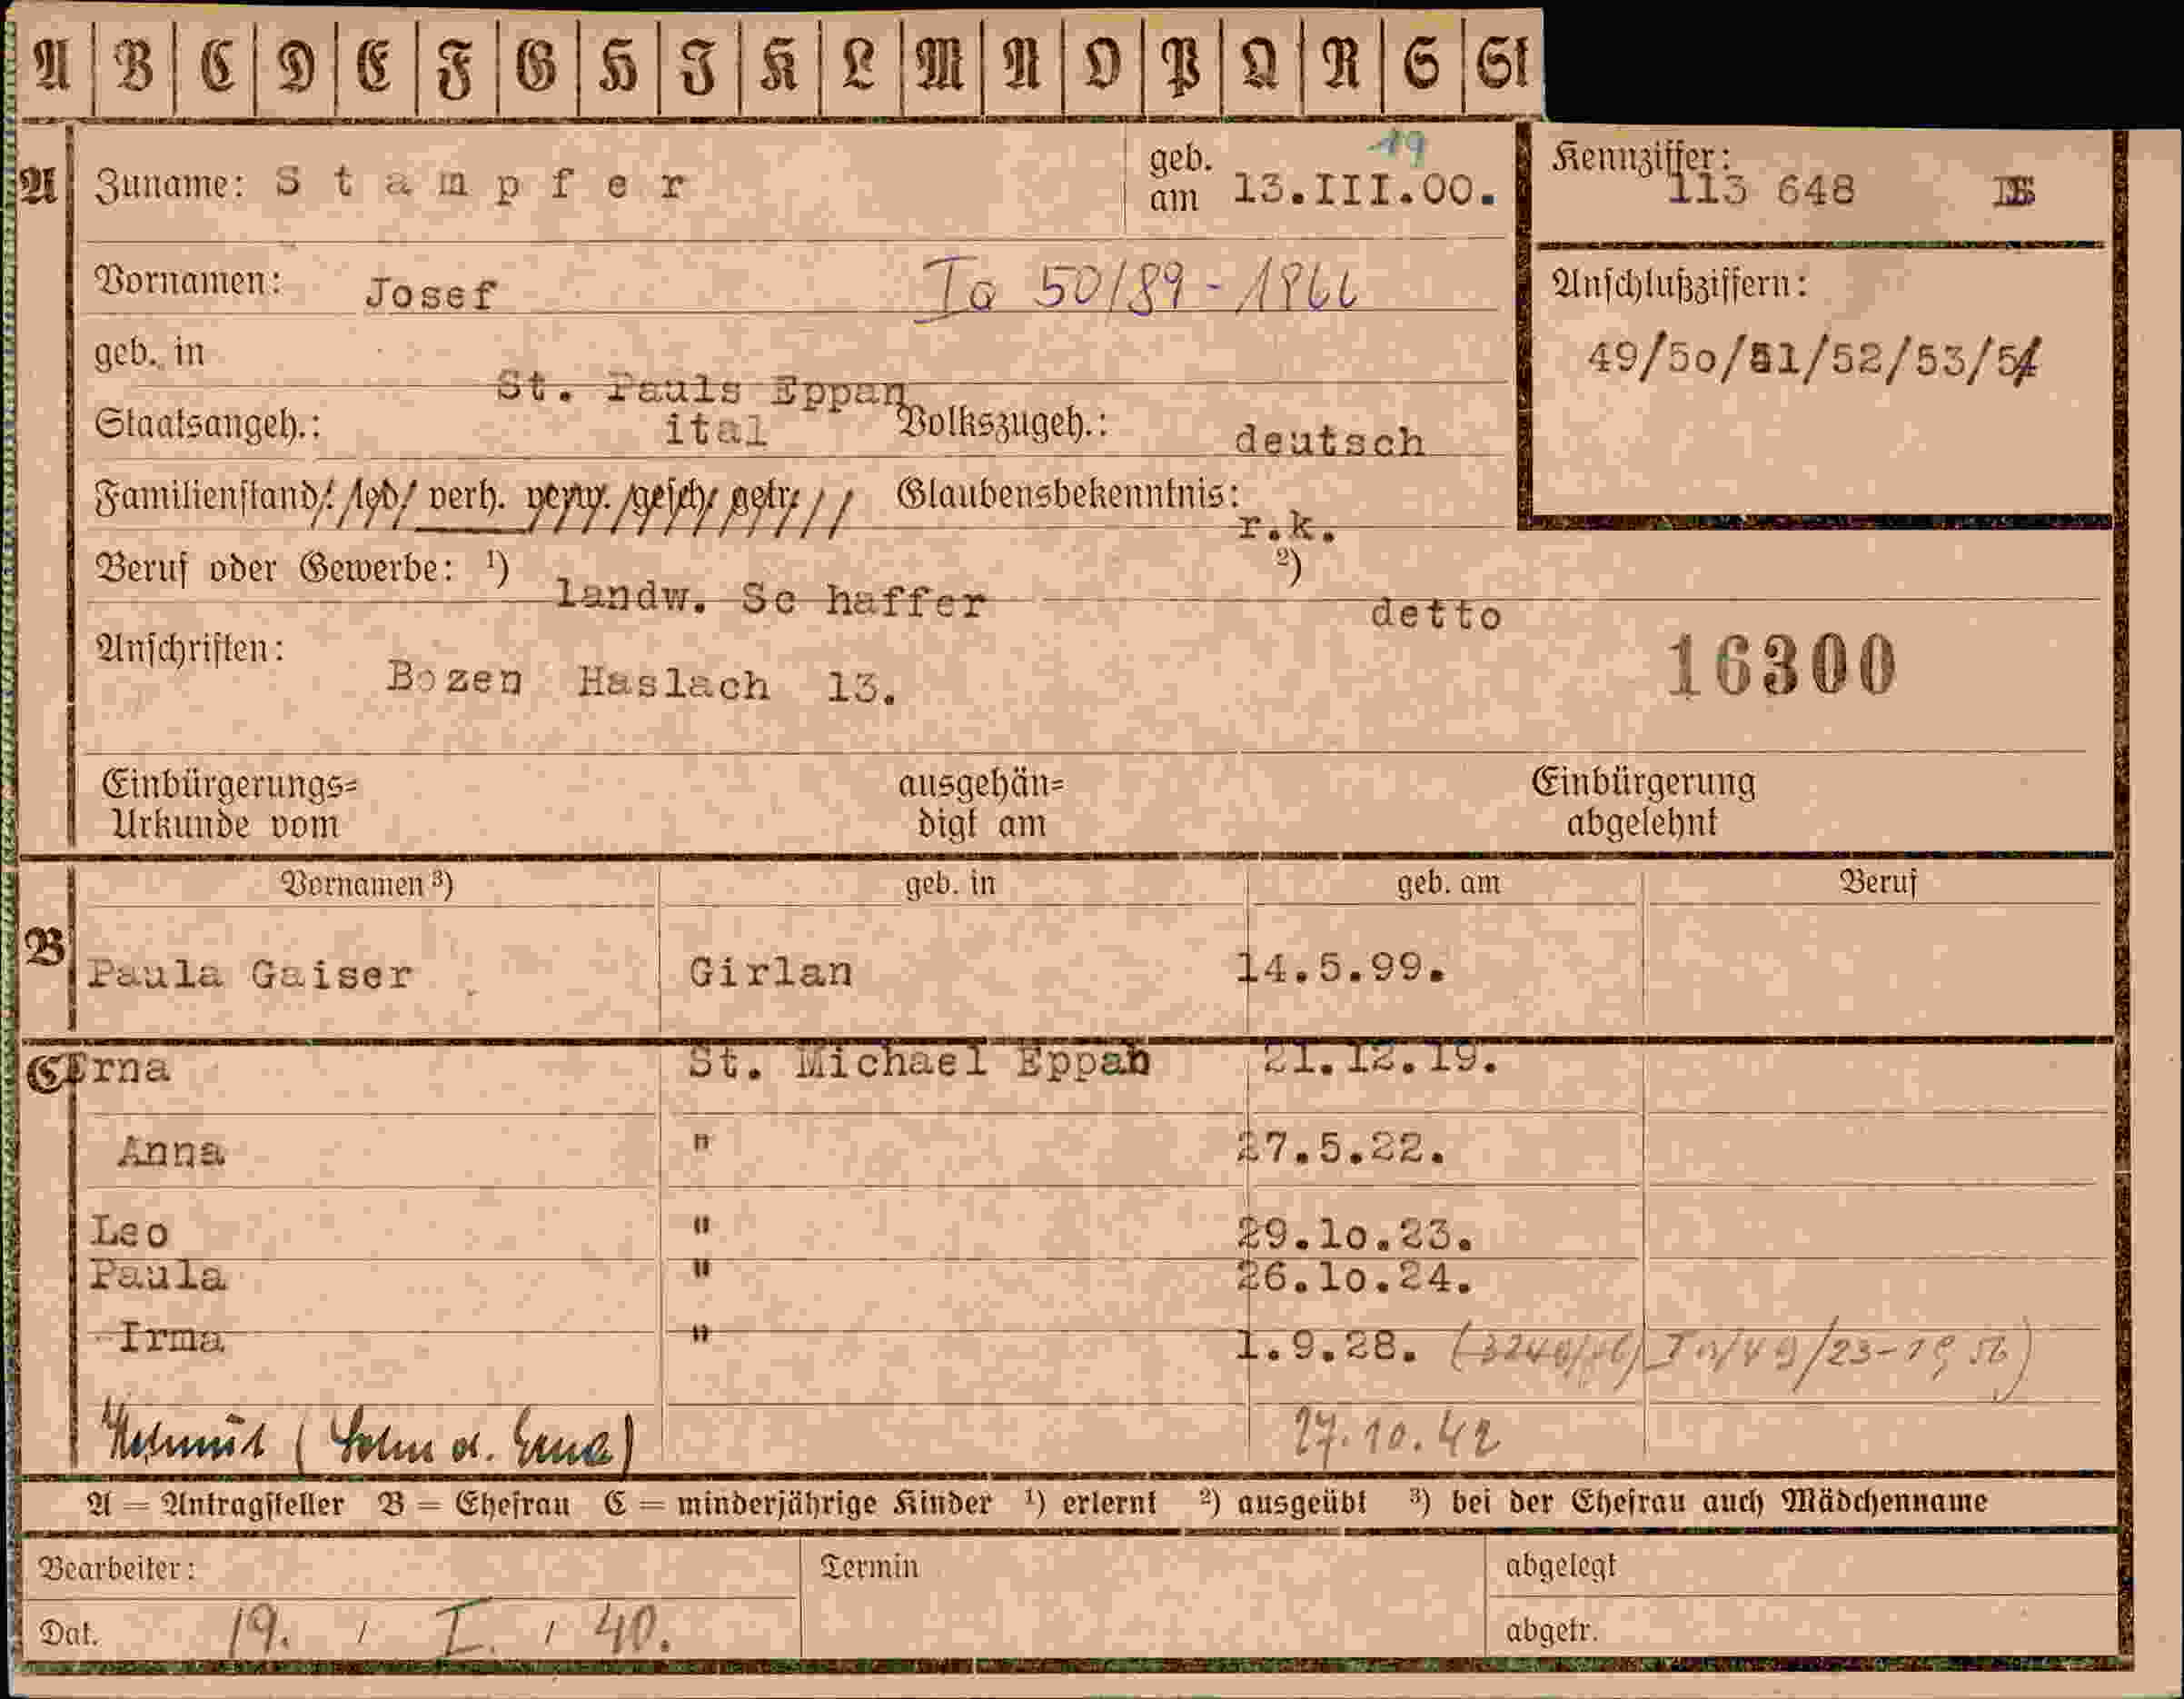 A B C D E F G H I K L M N O P Q R S St
A Zuname: Stampfer geb. am 13.III.00. 19 Kennziffer: 113 648
Vornamen: Josef Ia 50/89 - 1966 Anschlußziffern:
geb. in St. Pauls Eppan 49/50/51/52/53/54
Staatsangeh.: ital Volkszugeh.: deutsch
Familienstand: led. verh. verw. gesch. getr. Glaubensbekenntnis: r.k.
Beruf oder Gewerbe: ¹) landw. Sc haffer ²) detto
Anschriften: Bozen Haslach 13. 16300
Einbürgerungs= ausgehän= Einbürgerung
Urkunde vom digt am abgelehnt
Vornamen ³) geb. in geb. am Beruf
B Paula Gaiser Girlan 14.5.99.
C Erna St. Michael Eppan 21.12.19.
Anna " 27.5.22.
Leo " 29.10.23.
Paula " 26.10.24.
Irma " 1.9.28.
Helmut (Sohn d. Erna) 27.10.42
A = Antragsteller B = Ehefrau C = minderjährige Kinder ¹) erlernt ²) ausgeübt ³) bei der Ehefrau auch Mädchenname
Bearbeiter: Termin abgelegt
Dat. 19. / I. / 40. abgetr.